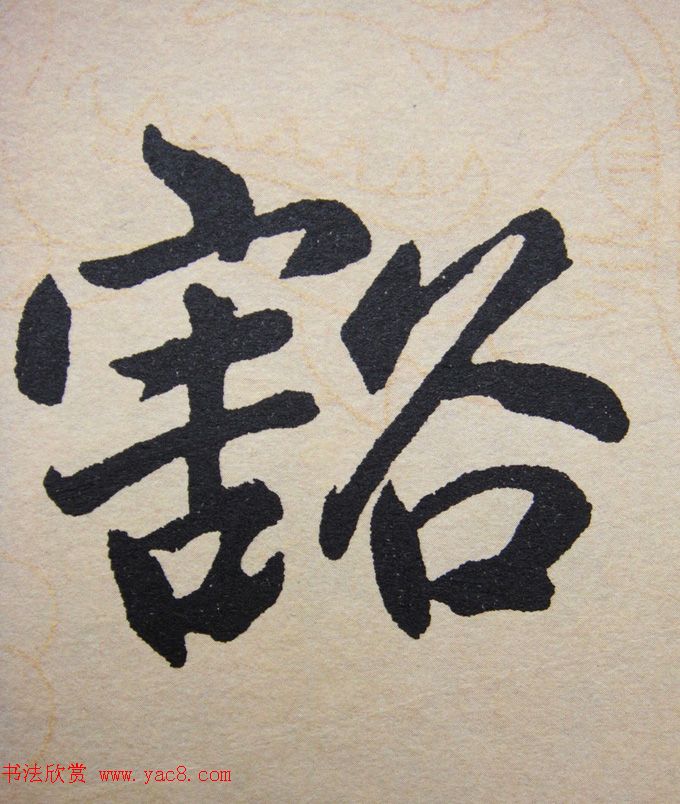 豁
书法欣赏 www.yac8.com